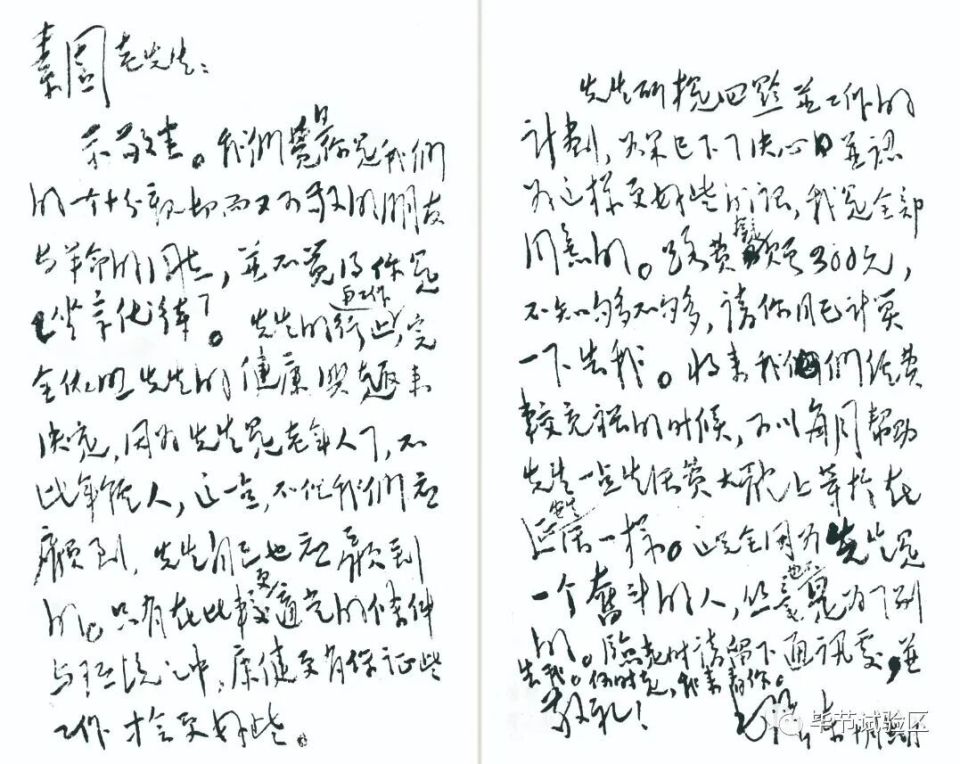 素园老先生：
示敬悉。我们觉得你是我们
的一个十分亲切而又可敬的朋友
与革命的同志，並不觉得你是
“坐享优待”。先生的行止与工作，完
全依照先生的健康兴趣来
决定，因为先生是老年人了，不
比年轻人，这一点，不但我们应
顾到，先生自己也应顾到
的。只有在比较更适当的条件
与环境之中，康健更有保证些，
工作才会更好些。
先生所提回黔並工作的
计划，如果已下了决心，並認
为这样更好些的话，我是全部
同意的。路费 300元，
不知够不够，请你自己计算
一下告我。将来我们经费
较充裕的时候，可以每月帮助
先生一点生活费大体上等于在
延安生活一样。这完全因为先生是
一个奋斗的人，丝毫也不是为了别
的。临走时请留下通讯处，並
告我。何时走，我来看你。
敬礼！
毛泽东
毕节试验区